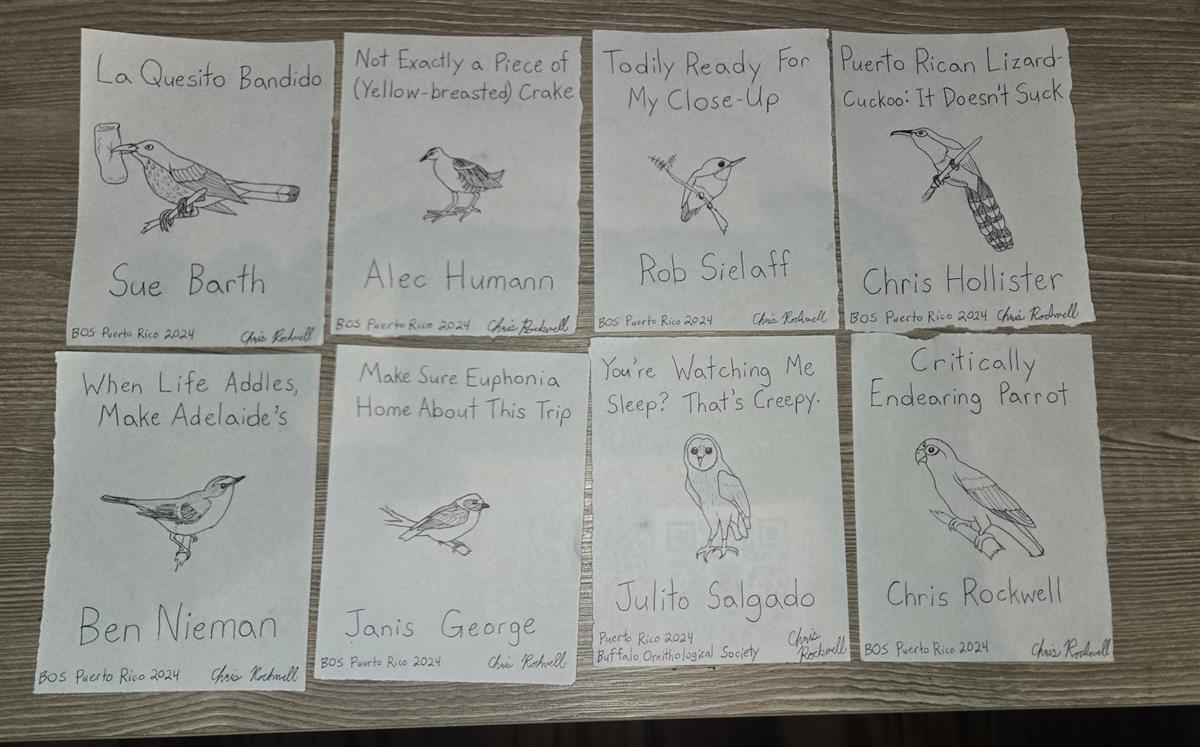 La Quesito Bandido
Sue Barth
BOS Puerto Rico 2024
Chris Rockwell
Not Exactly a Piece of
(Yellow-breasted) Crake
Alec Humann
BOS Puerto Rico 2024
Chris Rockwell
Todily Ready For
My Close-Up
Rob Sielaff
BOS Puerto Rico 2024
Chris Rockwell
Puerto Rican Lizard-
Cuckoo: It Doesn't Suck
Chris Hollister
BOS Puerto Rico 2024
Chris Rockwell
When Life Addles,
Make Adelaide's
Ben Nieman
BOS Puerto Rico 2024
Chris Rockwell
Make Sure Euphonia
Home About This Trip
Janis George
BOS Puerto Rico 2024
Chris Rockwell
You're Watching Me
Sleep? That's Creepy.
Julito Salgado
Puerto Rico 2024
Buffalo Ornithological Society
Chris
Rockwell
Critically
Endearing Parrot
Chris Rockwell
BOS Puerto Rico 2024
Chris Rockwell